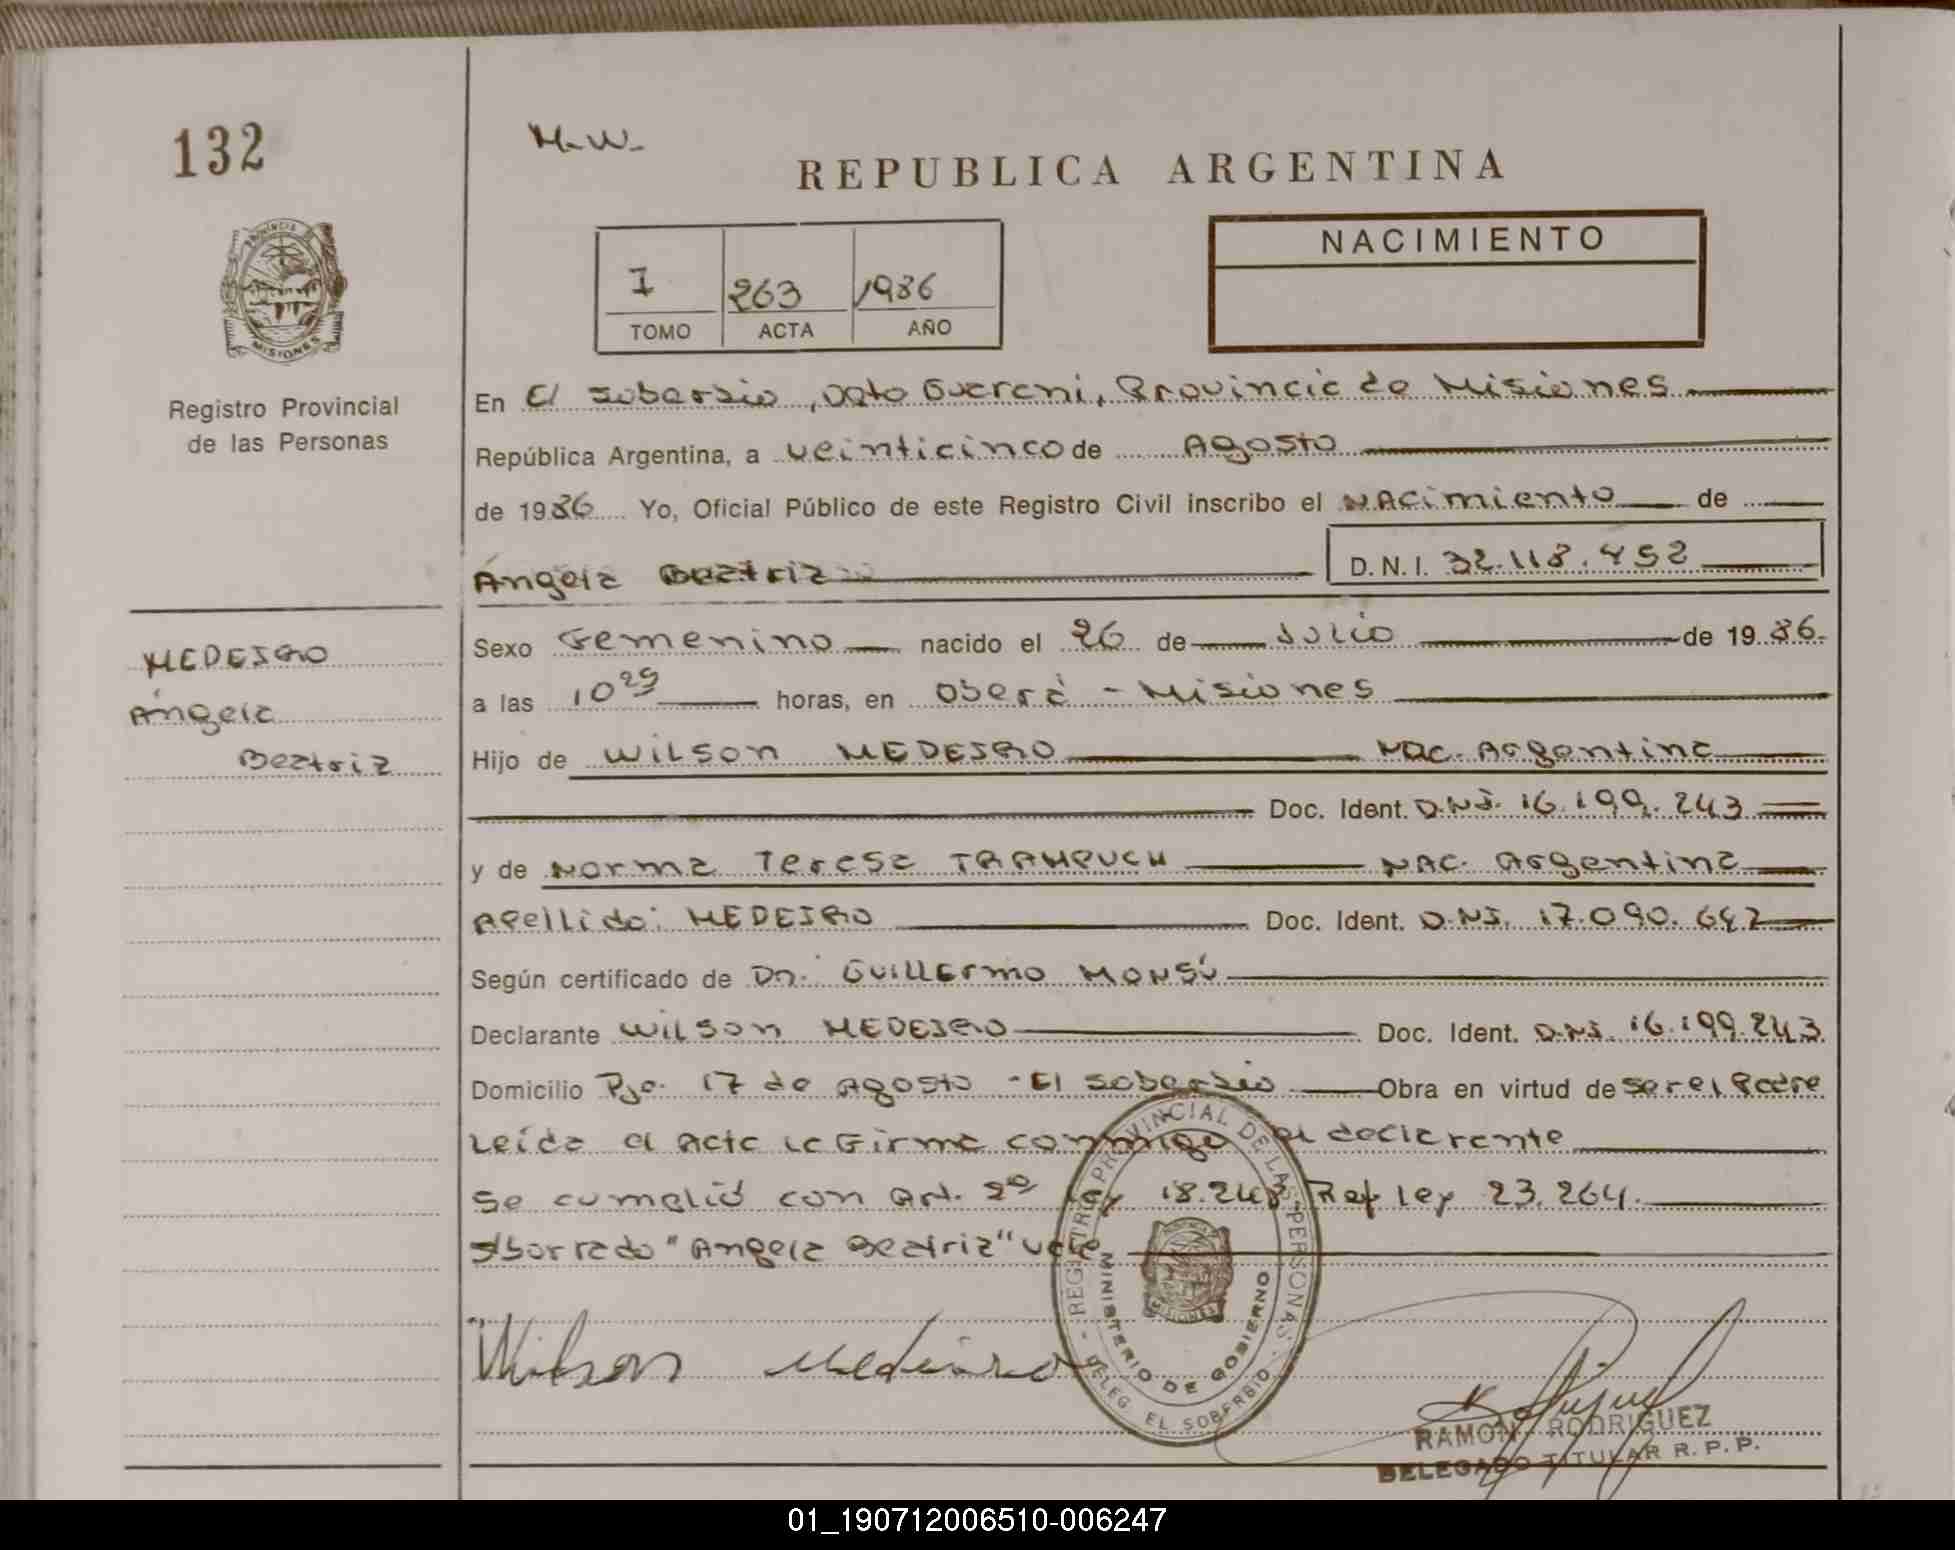 132
M.W.
REPUBLICA ARGENTINA
NACIMIENTO
I 263 1986
TOMO ACTA AÑO
PROVINCIA DE MISIONES
Registro Provincial
de las Personas
En El Soberbio, Dpto Guarani, Provincia de Misiones
República Argentina, a veinticinco de Agosto
de 1986 Yo, Oficial Público de este Registro Civil inscribo el NACimiento de
Ángela Beatriz D.N.I. 32.118.452
MEDEIRO
Ángela
Beatriz
Sexo Femenino nacido el 26 de Julio de 1986.
a las 10 25 horas, en Oberá - Misiones
Hijo de Wilson MEDEIRO Nac. Argentina
Doc. Ident. D.N.I. 16.199.243
y de Norma Teresa NAC. Argentina
Apellido: MEDEIRO Doc. Ident. D.N.I. 17.090.
Según certificado de Dr. Guillermo MONSÚ
Declarante Wilson MEDEIRO Doc. Ident. D.N.I. 16.199.243
Domicilio Pje. 17 de Agosto - El Soberbio Obra en virtud de ser el Padre
Leída el Acta la Firma conmigo el declarante
Se cumplió con Art. 2º Ley 18.248 Ref Ley 23.264.
S/borrado "Angela Beatriz" vale
REGISTRO PROVINCIAL DE LAS PERSONAS
MINISTERIO DE GOBIERNO
MISIONES
DELEG. EL SOBERBIO
Wilson Medeiro
RAMON RODRIGUEZ
DELEGADO TITULAR R.P.P.
01_190712006510-006247